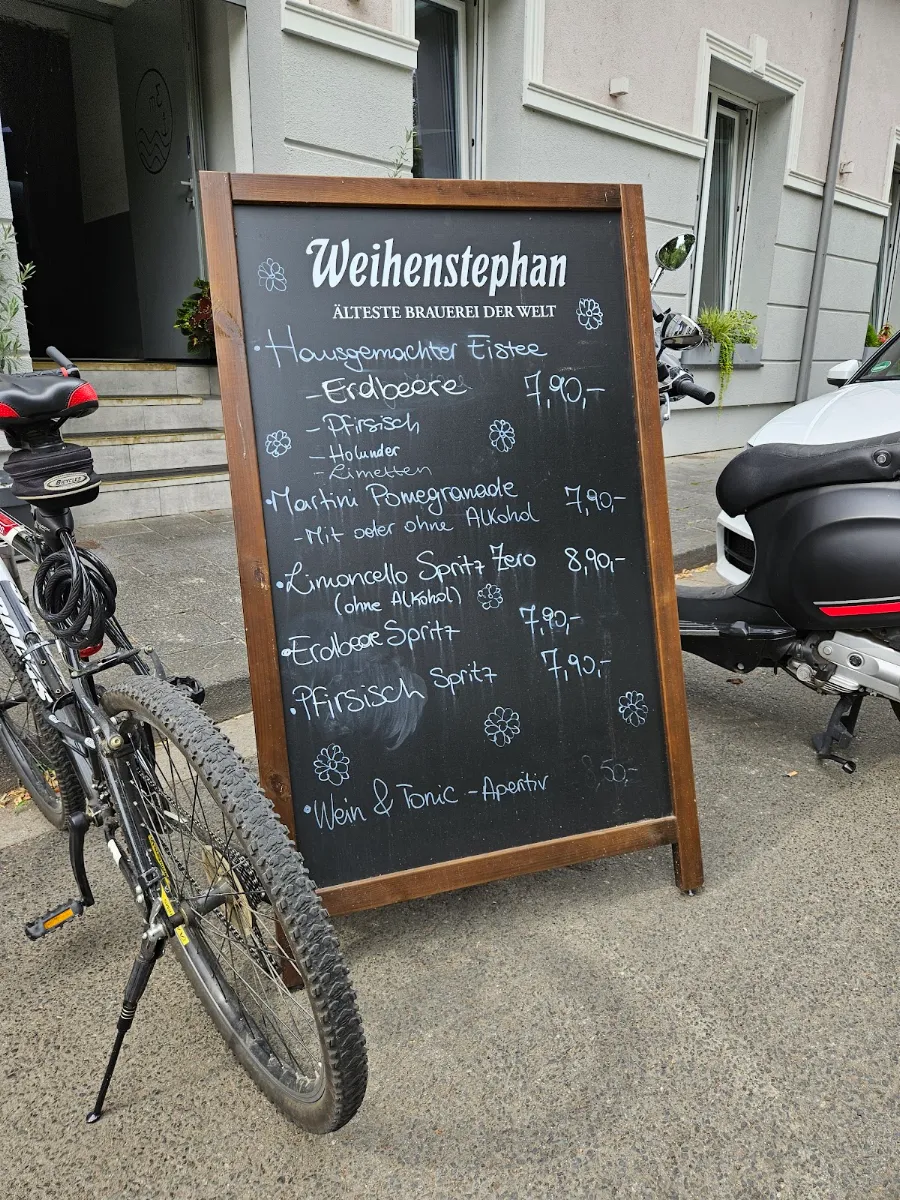 Weihenstephan
ÄLTESTE BRAUEREI DER WELT
• Hausgemachter Eistee
- Erdbeere 7,90,-
- Pfirsisch
- Holunder
- Limetten
• Martini Pomegranade 7,90,-
- Mit oder ohne Alkohol
• Limoncello Spritz Zero 8,90,-
(ohne Alkohol)
• Erdbeere Spritz 7,90,-
• Pfirsisch Spritz 7,90,-
• Wein & Tonic - Aperitiv